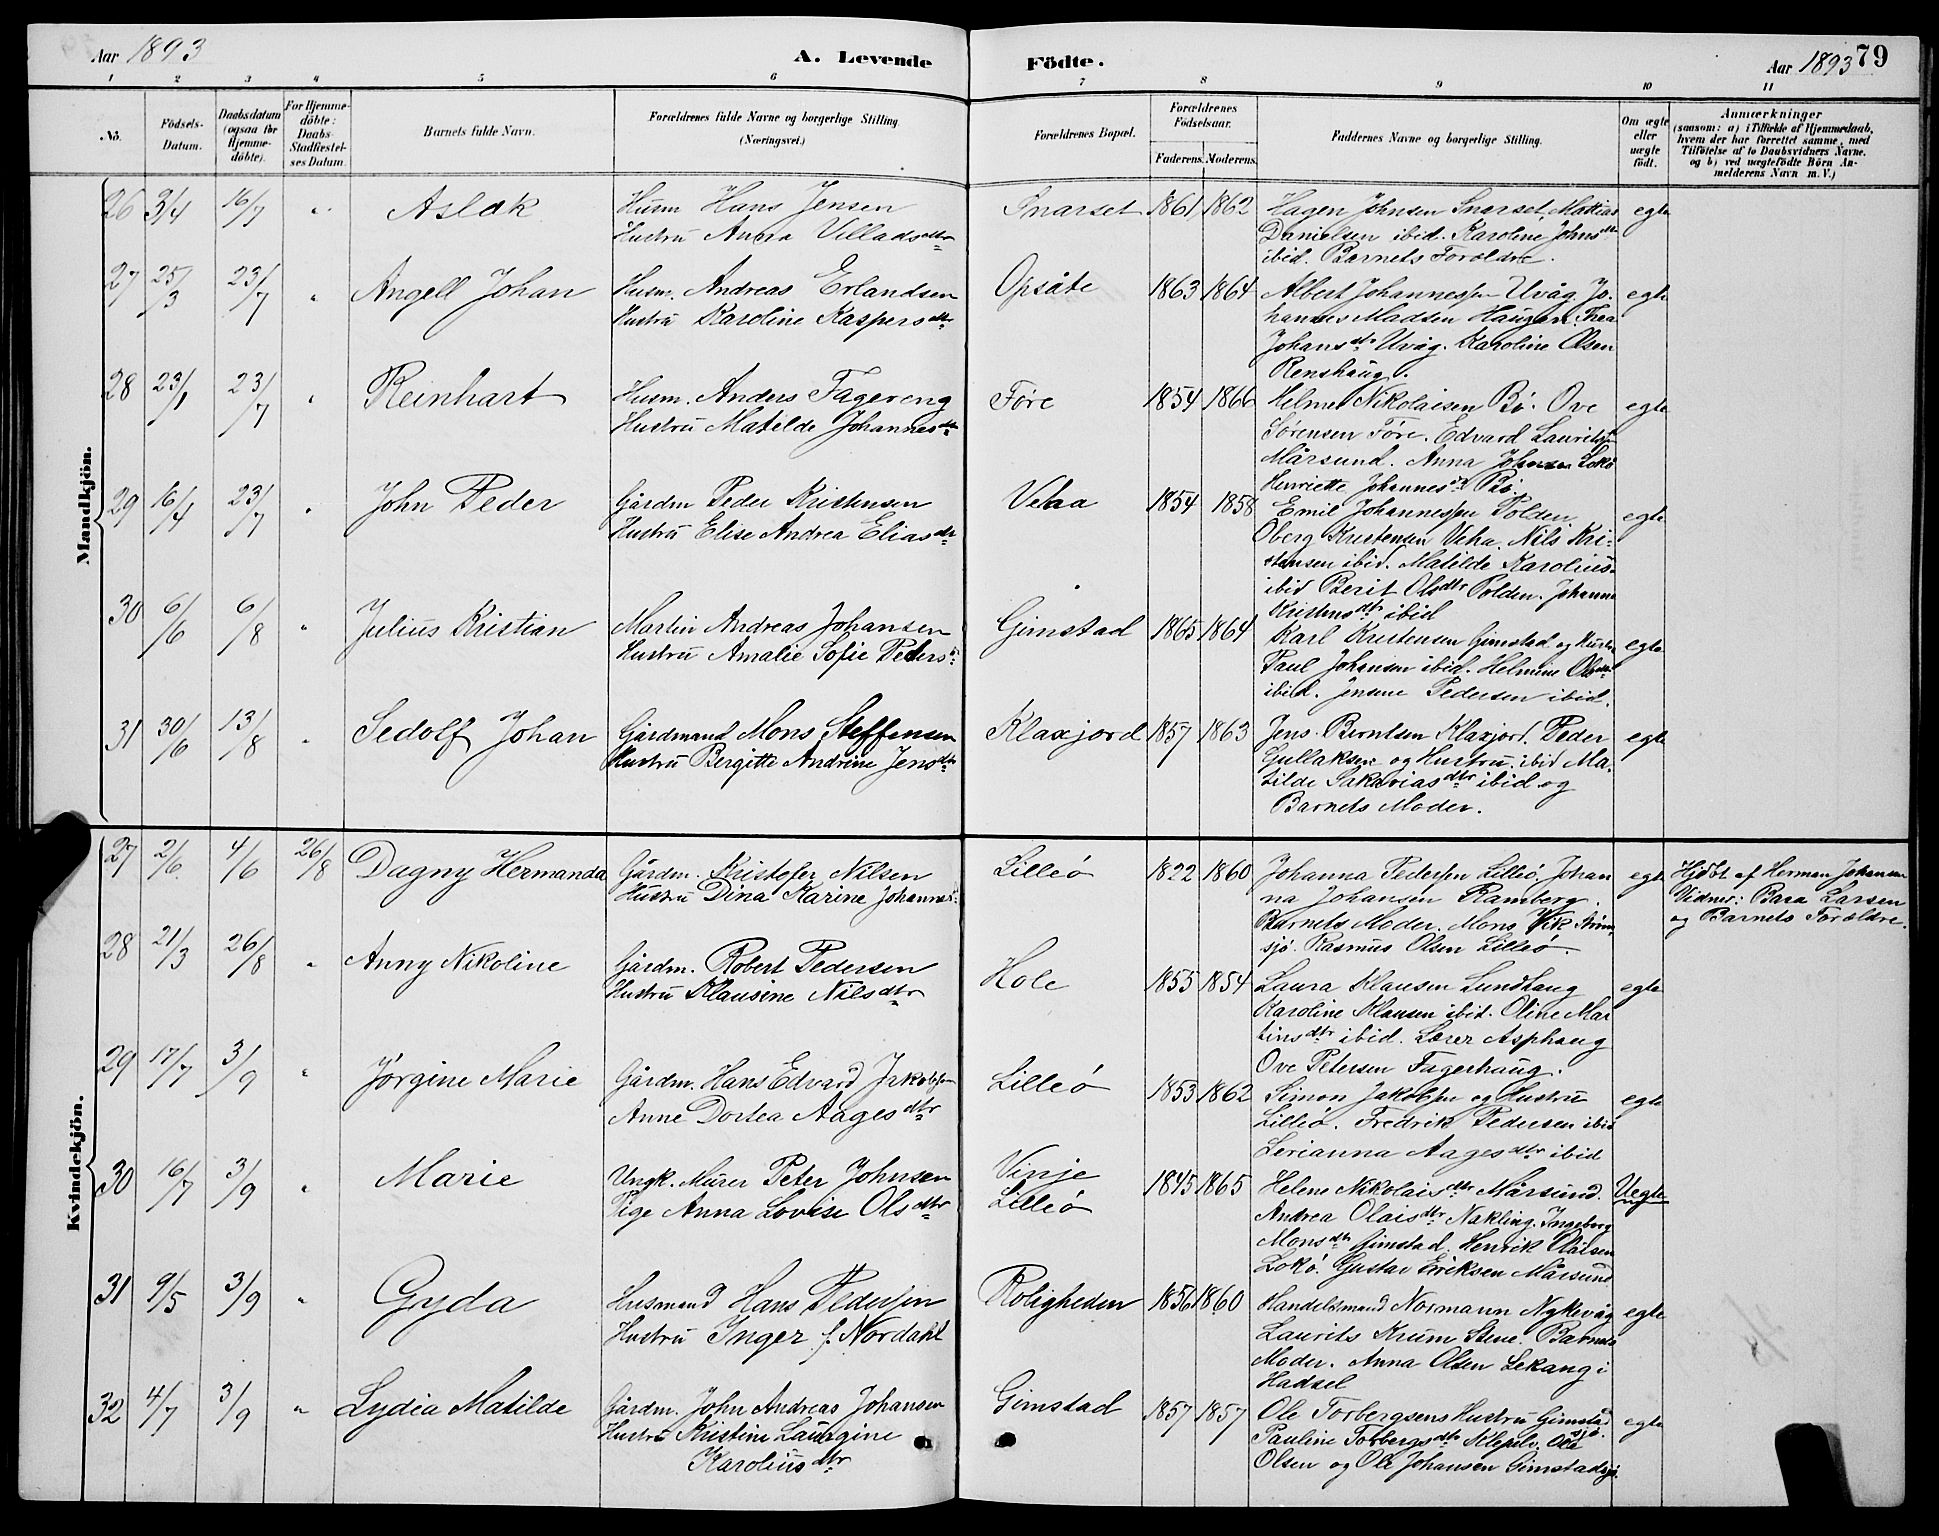 Aar 1893
A. Levende
Födte.
Aar 1893
79
1 2 3 4 5 6 7 8 9 10 11
No.
Födsels-
Datum.
Daabsdatum
(ogsaa for
Hjemme-
döbte).
For Hjemme-
döbte:
Daabs-
Stadfæstel-
ses Datum.
Barnets fulde Navn.
Forældrenes fulde Navne og borgerlige Stilling
(Næringsvei.)
Forældrenes Bopæl.
Forældrenes
Födselsaar.
Faderens. Moderens.
Faddernes Navne og borgerlige Stilling.
Om ægte
eller
uægte
födt.
Anmærkninger
(saasom: a) i Tilfælde af Hjemmedaab,
hvem der har forrettet samme, med
Tilföielse af to Daabsvidners Navne.
og b) ved uægtefödte Börn An-
melderens Navn m. V.)
Mandkjön.
26 3/4 16/7 " Aslak
Husm Hans Jensen
Hustru Anna Villadsdtr
Snarset 1861 1862
Hagen Johnsen Snarset, Mattias
Danielsen ibid. Karoline Johnsdtr
ibid. Barnets Foroldre.
egte
27 25/3 23/7 " Angell Johan
Husm. Andreas Erlandsen
Hustru Karoline Kaspersdtr
Opsåte 1863 1864
Albert Johannessen Uvåg. Jo-
hannes Madsen Haugen. Thea
Johansdtr Uvåg. Karoline Olsen
Renshaug.
egte
28 23/1 23/7 " Reinhart
Husm. Anders Fagereng
Hustru Matilde Johannesdtr
Føre 1854 1866
Helmer Nikolaisen Bø. Ove
Sørensen Føre. Edvard Lauritsen
Mårsund. Anna Johnsen Lokø
Henriette Johannesdtr Bø.
egte
29 16/4 23/7 " John Peder
Gårdm Peder Kristensen
Hustru Elise Andrea Eliasdtr
Vehaa 1854 1858
Emil Johannessen Polden
Oberg Kristensen Veha. Nils Kri-
stensen ibid. Matilde Karolius
ibid Berit Olsdtr Polden. Johanna
Kristensdtr ibid
egte
30 6/6 6/8 " Julius Kristian
Martin Andreas Johansen
Hustru Amalie Sofie Peders
Gimstad 1865 1864
Karl Kristensen Gimstad og Hustru
Paul Johansen ibid. Helmine Olsdtr
ibid. Jensine Pedersen ibid.
egte
31 30/6 13/8 " Sedolf Johan
Gårdmand Mons Steffensen
Hustru Bergitte Andrine Jensdtr
Klaxjord 1857 1863
Jens Berntsen Klaxjord. Peder
Gullaksen og Hustru. ibid Ma-
tilde Sakariasdtr ibid og
Barnets Moder.
egte
Kvindekjön.
27 2/6 4/6 26/8 Dagny Hermanda
Gårdm. Kristofer Nilsen
Hustru Dina Karine Johannes
Lilleø 1822 1860
Johanna Pedersen Lilleø. Johan
na Johansen Ramberg.
Barnets Moder. Mons Vik
sjø. Rasmus Olsen Lilleø.
egte
Hjdøbt af Herman Johansen
Vidner: Bara Larsen
og Barnets Foroldre.
28 21/3 26/8 " Anny Nikoline
Gårdm. Robert Pedersen
Hustru Klausine Nilsdtr
Hole 1855 1854
Laura Klausen Sundhaug
Karoline Klausen ibid. Oline Mar
tinsdtr ibid. Lærer Asphaug
Ove Petersen Fagerhaug.
egte
29 17/7 3/9 " Jørgine Marie
Gårdm. Hans Edvard Jakobsen
Anne Dortea Aagesdtr
Lilleø 1853 1862
Simon Jakobsen og Hustru
Lilleø. Fredrik Pedersen ibid
Lerianna Aagesdtr ibid
egte
30 16/7 3/9 " Marie
Ungk. Murer Peter Johnsen
Pige Anna Lovise Olsdtr
Vinje
Lilleø
1845 1865
Helene Nikolaisdtr Mårsund.
Andrea Olaisdtr Nakling. Ingeborg
Monsdtr Gimstad. Henrik Olaisen
Lokø. Gustav Eriksen Mårsund
Uegte
31 9/5 3/9 " Gyda
Husmand Hans Pedersen
Hustru Inger f. Nordahl
Roligheden 1856 1860
Handelsmand Normann Nykvåg
Laurits Krum Stene. Barnets
Moder. Anna Olsen Lekang i
Hadsel
egte
32 4/7 3/9 " Lydia Matilde
Gårdm. John Andreas Johansen
Hustru Kristine Laurgine
Karoliusdtr
Gimstad 1857 1857
Ole Torbergsens Hustru Gimstad
sjø.
Pauline Torbergsdtr Ole
Olsen og Ole Johansen Gimstadsjø.
egte